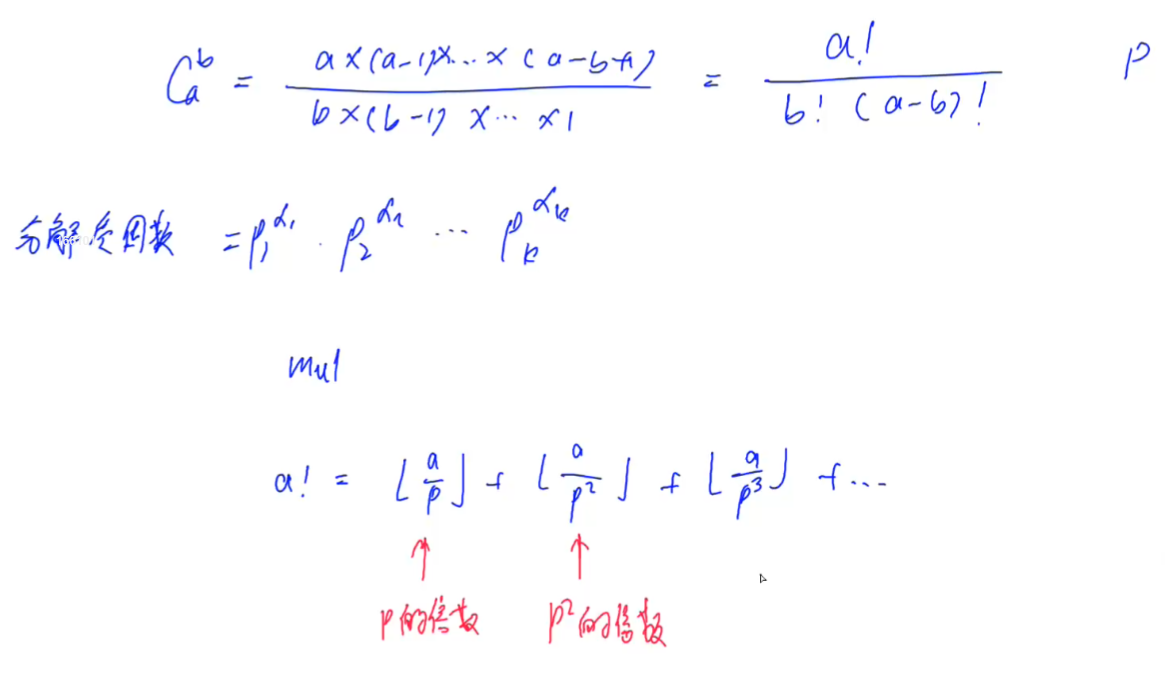 C_a^b = \frac{a×(a-1)×…×(a-b+1)}{b×(b-1)×…×1} = \frac{a!}{b!(a-b)!} P
分解质因数 = P_1^{α_1} · P_2^{α_2} … P_k^{α_k}
mul
a! = ⌊\frac{a}{p}⌋ + ⌊\frac{a}{p^2}⌋ + ⌊\frac{a}{p^3}⌋ + …
P的倍数 P²的倍数